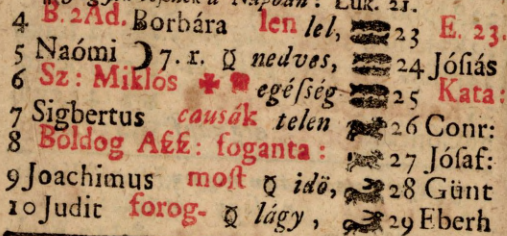 Luk. 21.
4 B. 2Ad. Borbára len lel, 23 E. 23.
5 Naómi ☽ 7. r. nedves, 24 Jóſiás
6 Sz: Miklós egéſség 25 Kata:
7 Sigbertus cauſák telen 26 Conr:
8 Boldog Aſſ: foganta: 27 Jóſaf:
9 Joachimus moſt idö, 28 Günt
10 Judit forog- lágy, 29 Eberh